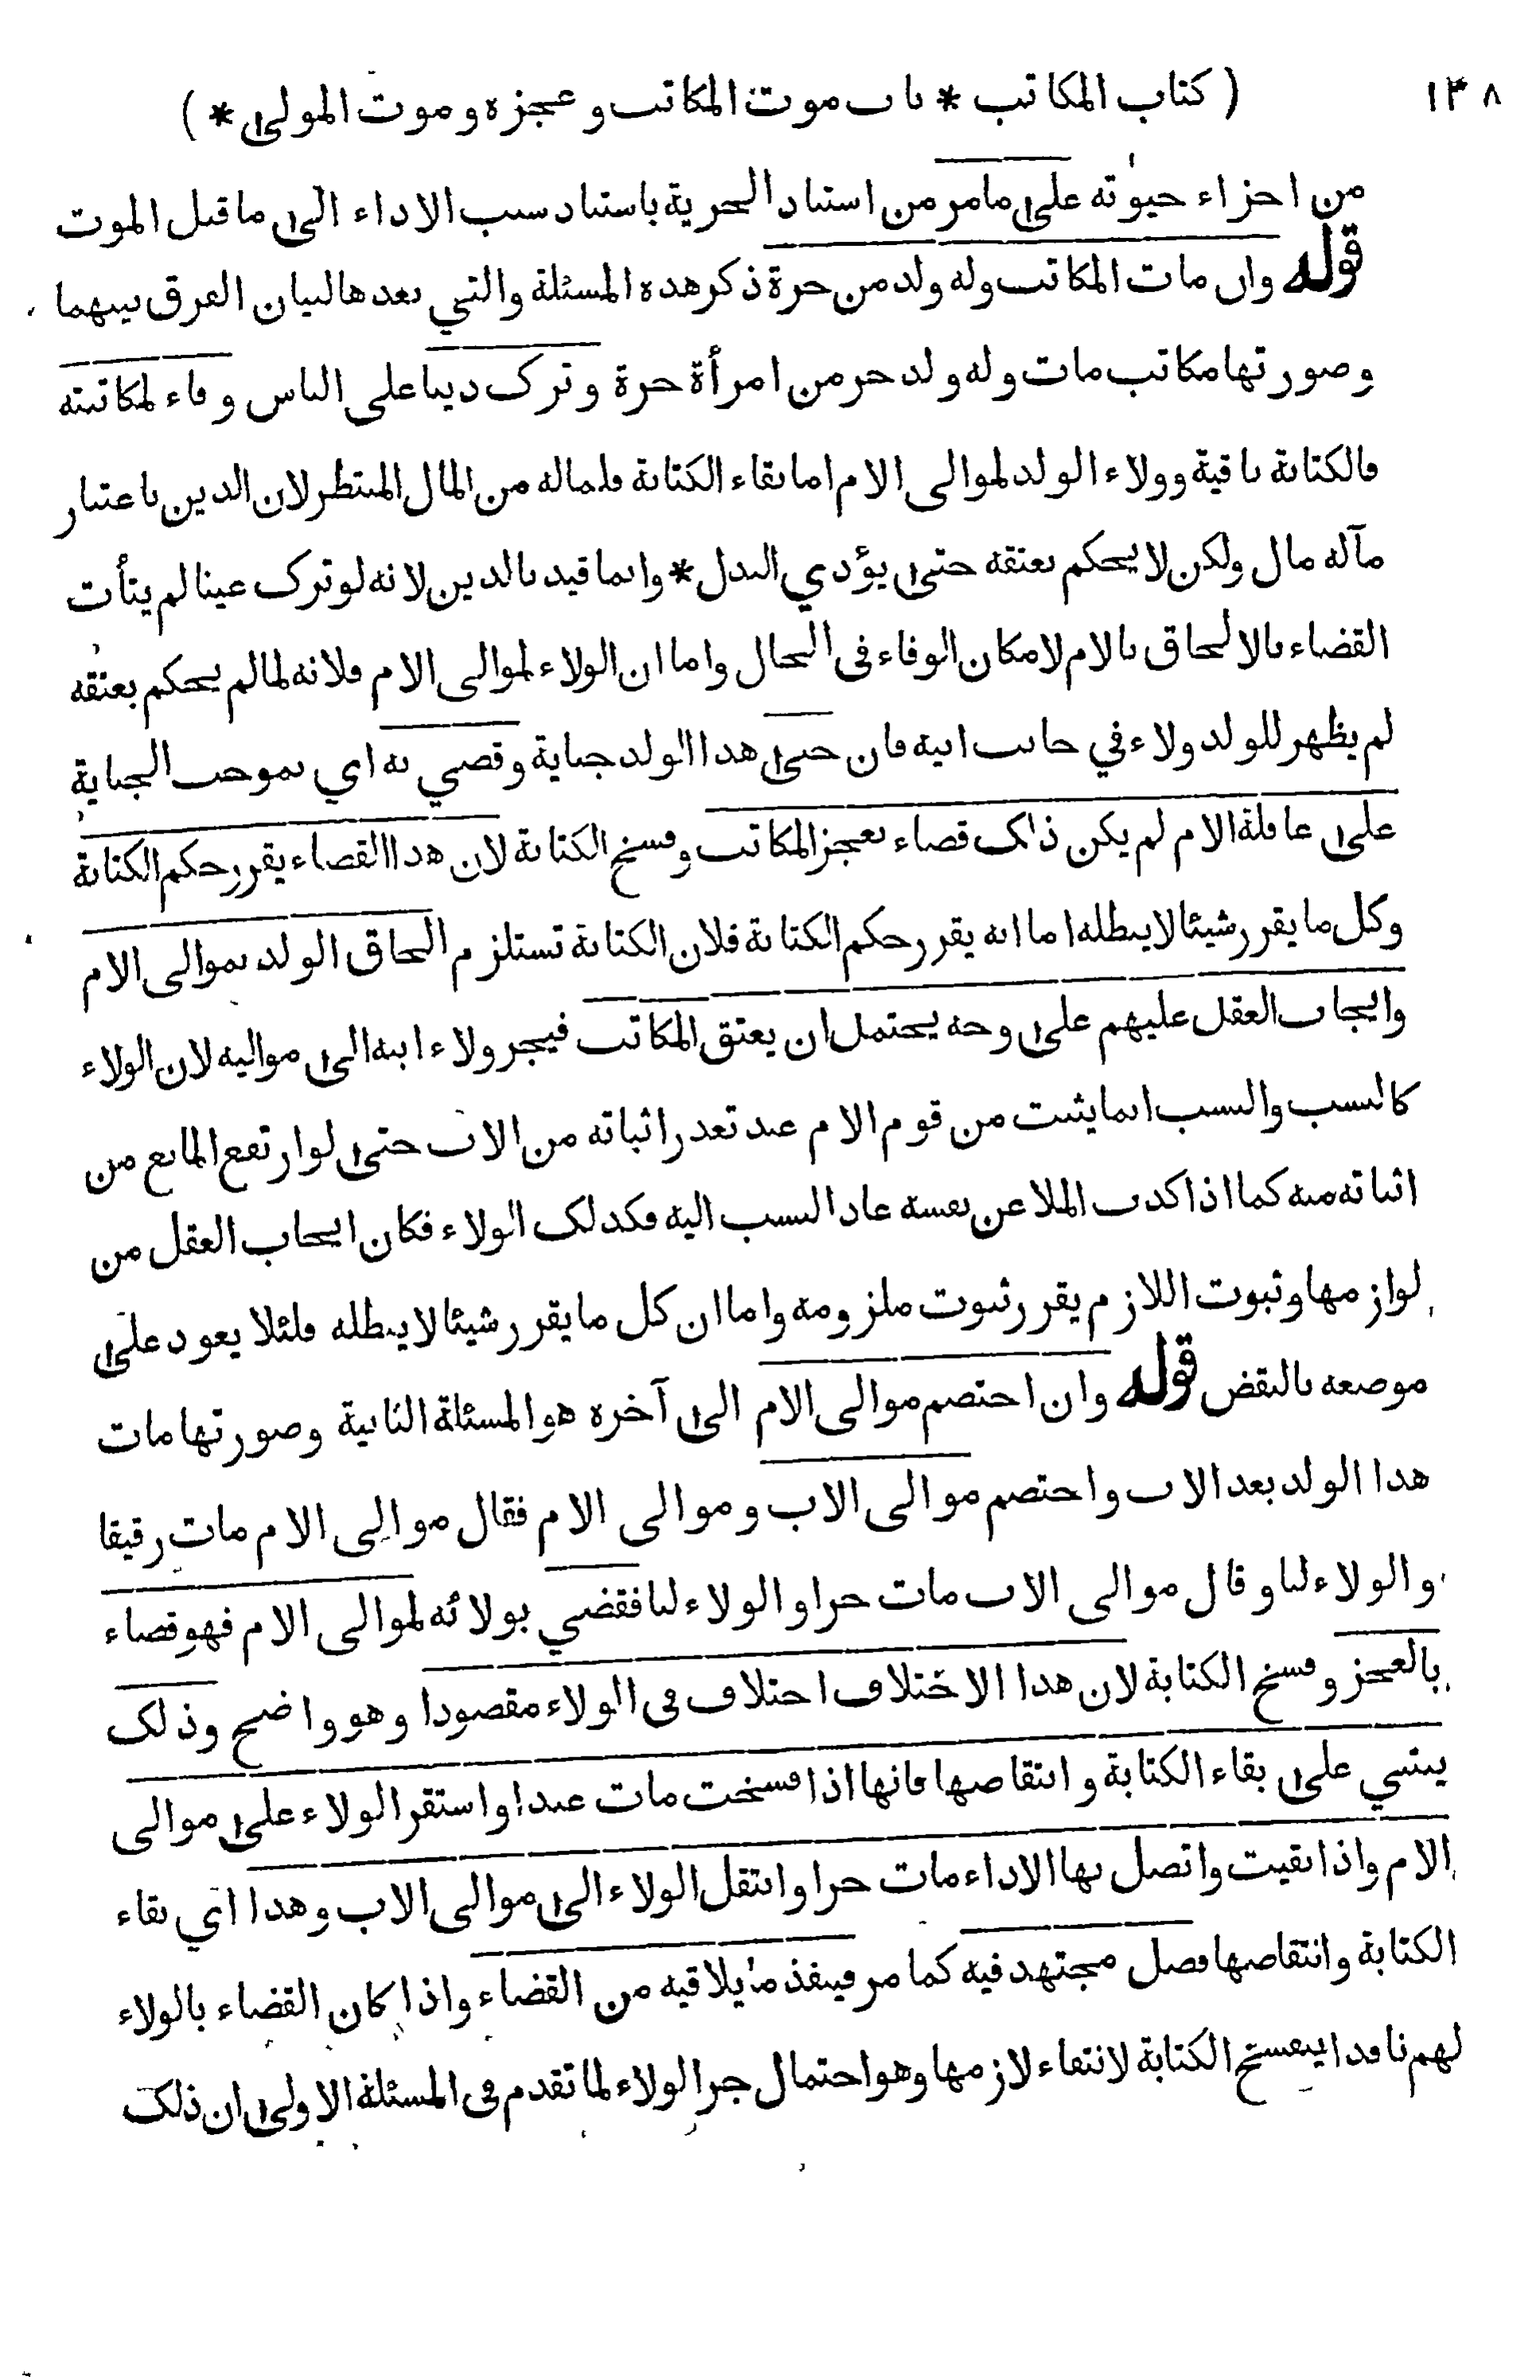 ١٣٨
( كتاب المكاتب * باب موت المكاتب وعجزه وموت المولى * )
من اجزاء حيوته على مامر من استناد الحرية باستناد سبب الاداء الى ماقبل الموت
قوله وان مات المكاتب وله ولد من حرة ذكر هذه المسئلة والتي بعدها لبيان الفرق بينهما
وصورتها مكاتب مات وله ولد حر من امرأة حرة وترك دينا على الناس وفاء لمكاتبته
فالكتابة باقية وولاء الولد لموالى الام اما بقاء الكتابة فلماله من المال المنتظر لان الدين باعتبار
مآله مال ولكن لا يحكم بعتقه حتى يؤدي البدل * وانما قيد بالدين لانه لو ترك عينا لم يتأت
القضاء بالالحاق بالام لامكان الوفاء فى الحال واما ان الولاء لموالى الام فلانه لما لم يحكم بعتقه
لم يظهر للولد ولاء في جانب ابيه فان جنى هذا الولد جناية وقضي به اي بموجب الجناية
على عاقلة الام لم يكن ذلك قضاء بعجز المكاتب وفسخ الكتابة لان هذا القضاء يقرر حكم الكتابة
وكل ما يقرر شيئا لا يبطله اما انه يقرر حكم الكتابة فلان الكتابة تستلزم الحاق الولد بموالى الام
وايجاب العقل عليهم على وجه يحتمل ان يعتق المكاتب فيجر ولاء ابنه الى مواليه لان الولاء
كالنسب والنسب انما يثبت من قوم الام عند تعذر اثباته من الاب حتى لو ارتفع المانع من
اثباته منه كما اذا كذب الملاعن نفسه عاد النسب اليه فكذلك الولاء فكان ايجاب العقل من
لوازمها وثبوت اللازم يقرر ثبوت ملزومه واما ان كل ما يقرر شيئا لا يبطله فلئلا يعود على
موضعه بالنقض قوله وان اختصم موالى الام الى آخره هو المسئلة الثانية وصورتها مات
هذا الولد بعد الاب واختصم موالى الاب وموالى الام فقال موالى الام مات رقيقا
والولاء لنا وقال موالى الاب مات حرا والولاء لنا فقضي بولائه لموالى الام فهو قضاء
بالعجز وفسخ الكتابة لان هذا الاختلاف اختلاف فى الولاء مقصودا وهو واضح وذلك
يبتني على بقاء الكتابة وانتقاضها فانها اذا فسخت مات عبدا واستقر الولاء على موالى
الام واذا بقيت واتصل بها الاداء مات حرا وانتقل الولاء الى موالى الاب وهذا اي بقاء
الكتابة وانتقاضها فصل مجتهد فيه كما مر فينفذ ما يلاقيه من القضاء واذا كان القضاء بالولاء
لهم نافذا ينفسخ الكتابة لانتفاء لازمها وهو احتمال جر الولاء لما تقدم فى المسئلة الاولى ان ذلك